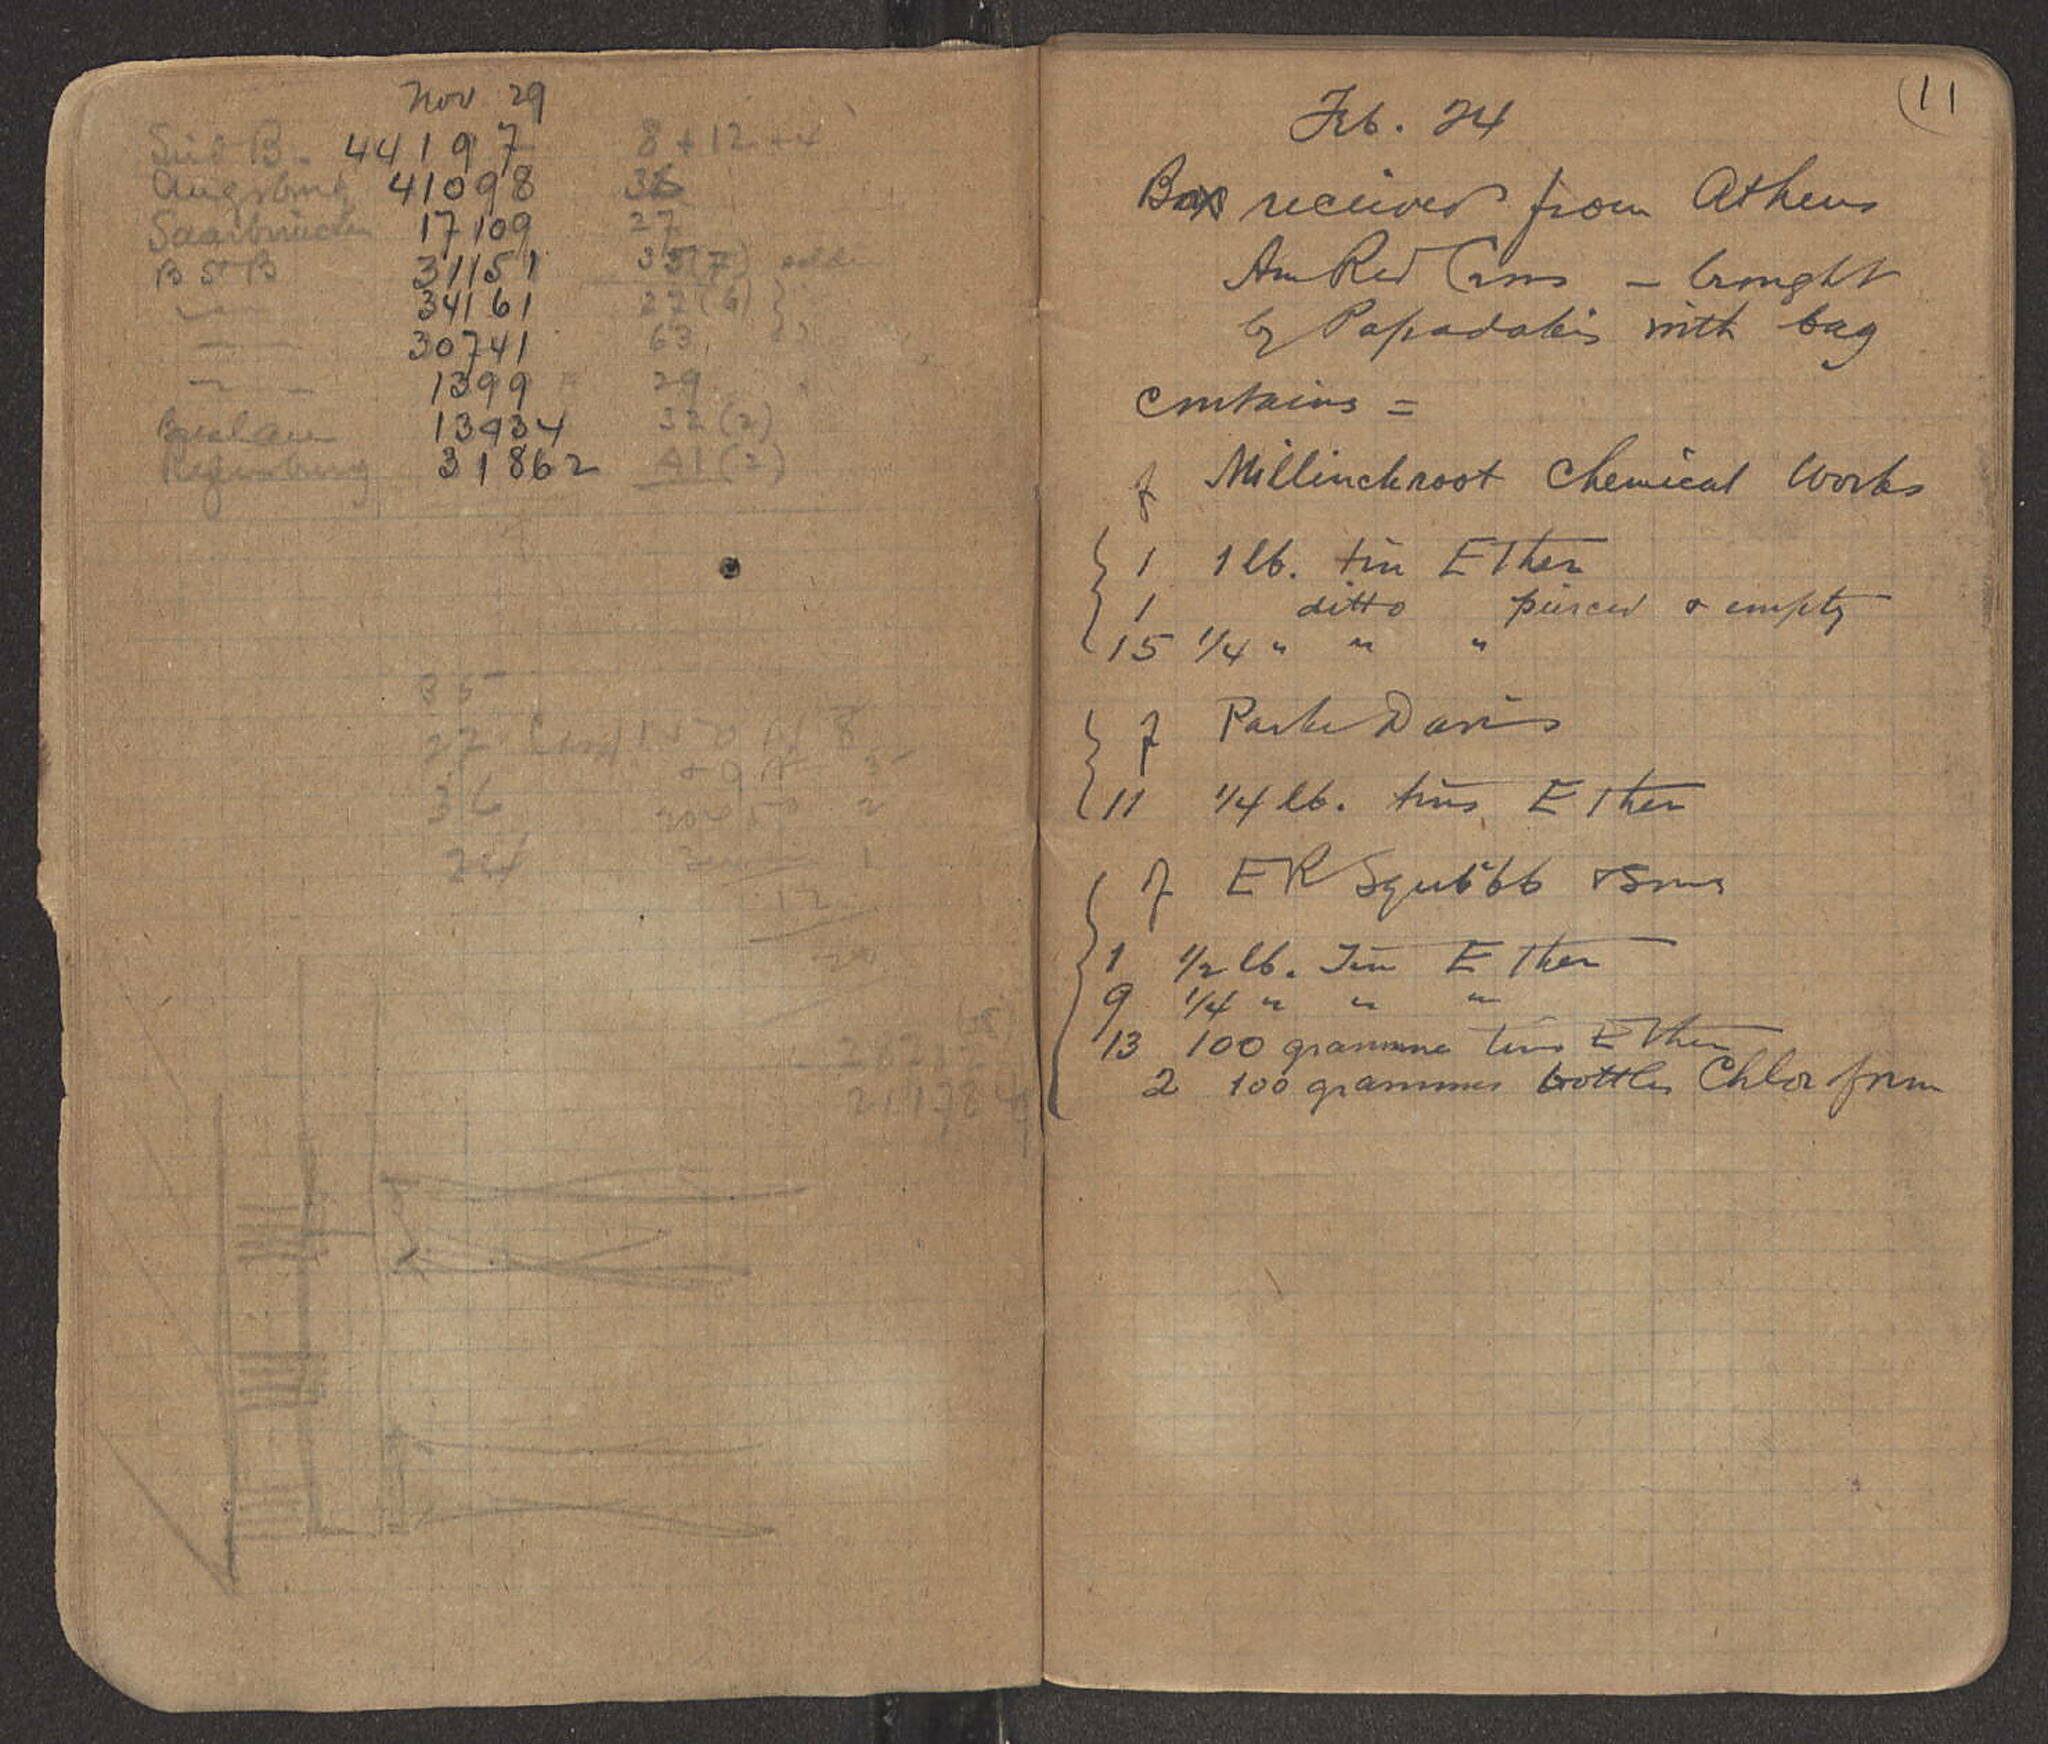 Nov 29
Süd B. 44197 8 + 12 + 4
Augsburg 41098 36
Saarbrücken 17109 27
B St B 31151 35 (7)
34161 27 (6)
30741 63
1399 29
Breslau 13934 32 (2)
Regensburg 31862 41 (2)
35
27
36
24
12
20
11
Feb. 24
Box received from Athens
Am Red Cross - brought
by Papadakis with bag
contains =
f Millinckroot Chemical Works
1 1 lb. tin Ether
1 ditto pierced & empty
15 1/4 " " "
f Parke Davis
11 1/4 lb. tins Ether
f E R Squibb & Sons
1 1/2 lb. Tin Ether
9 1/4 " " "
13 100 gramme tins Ether
2 100 grammes bottles Chloroform